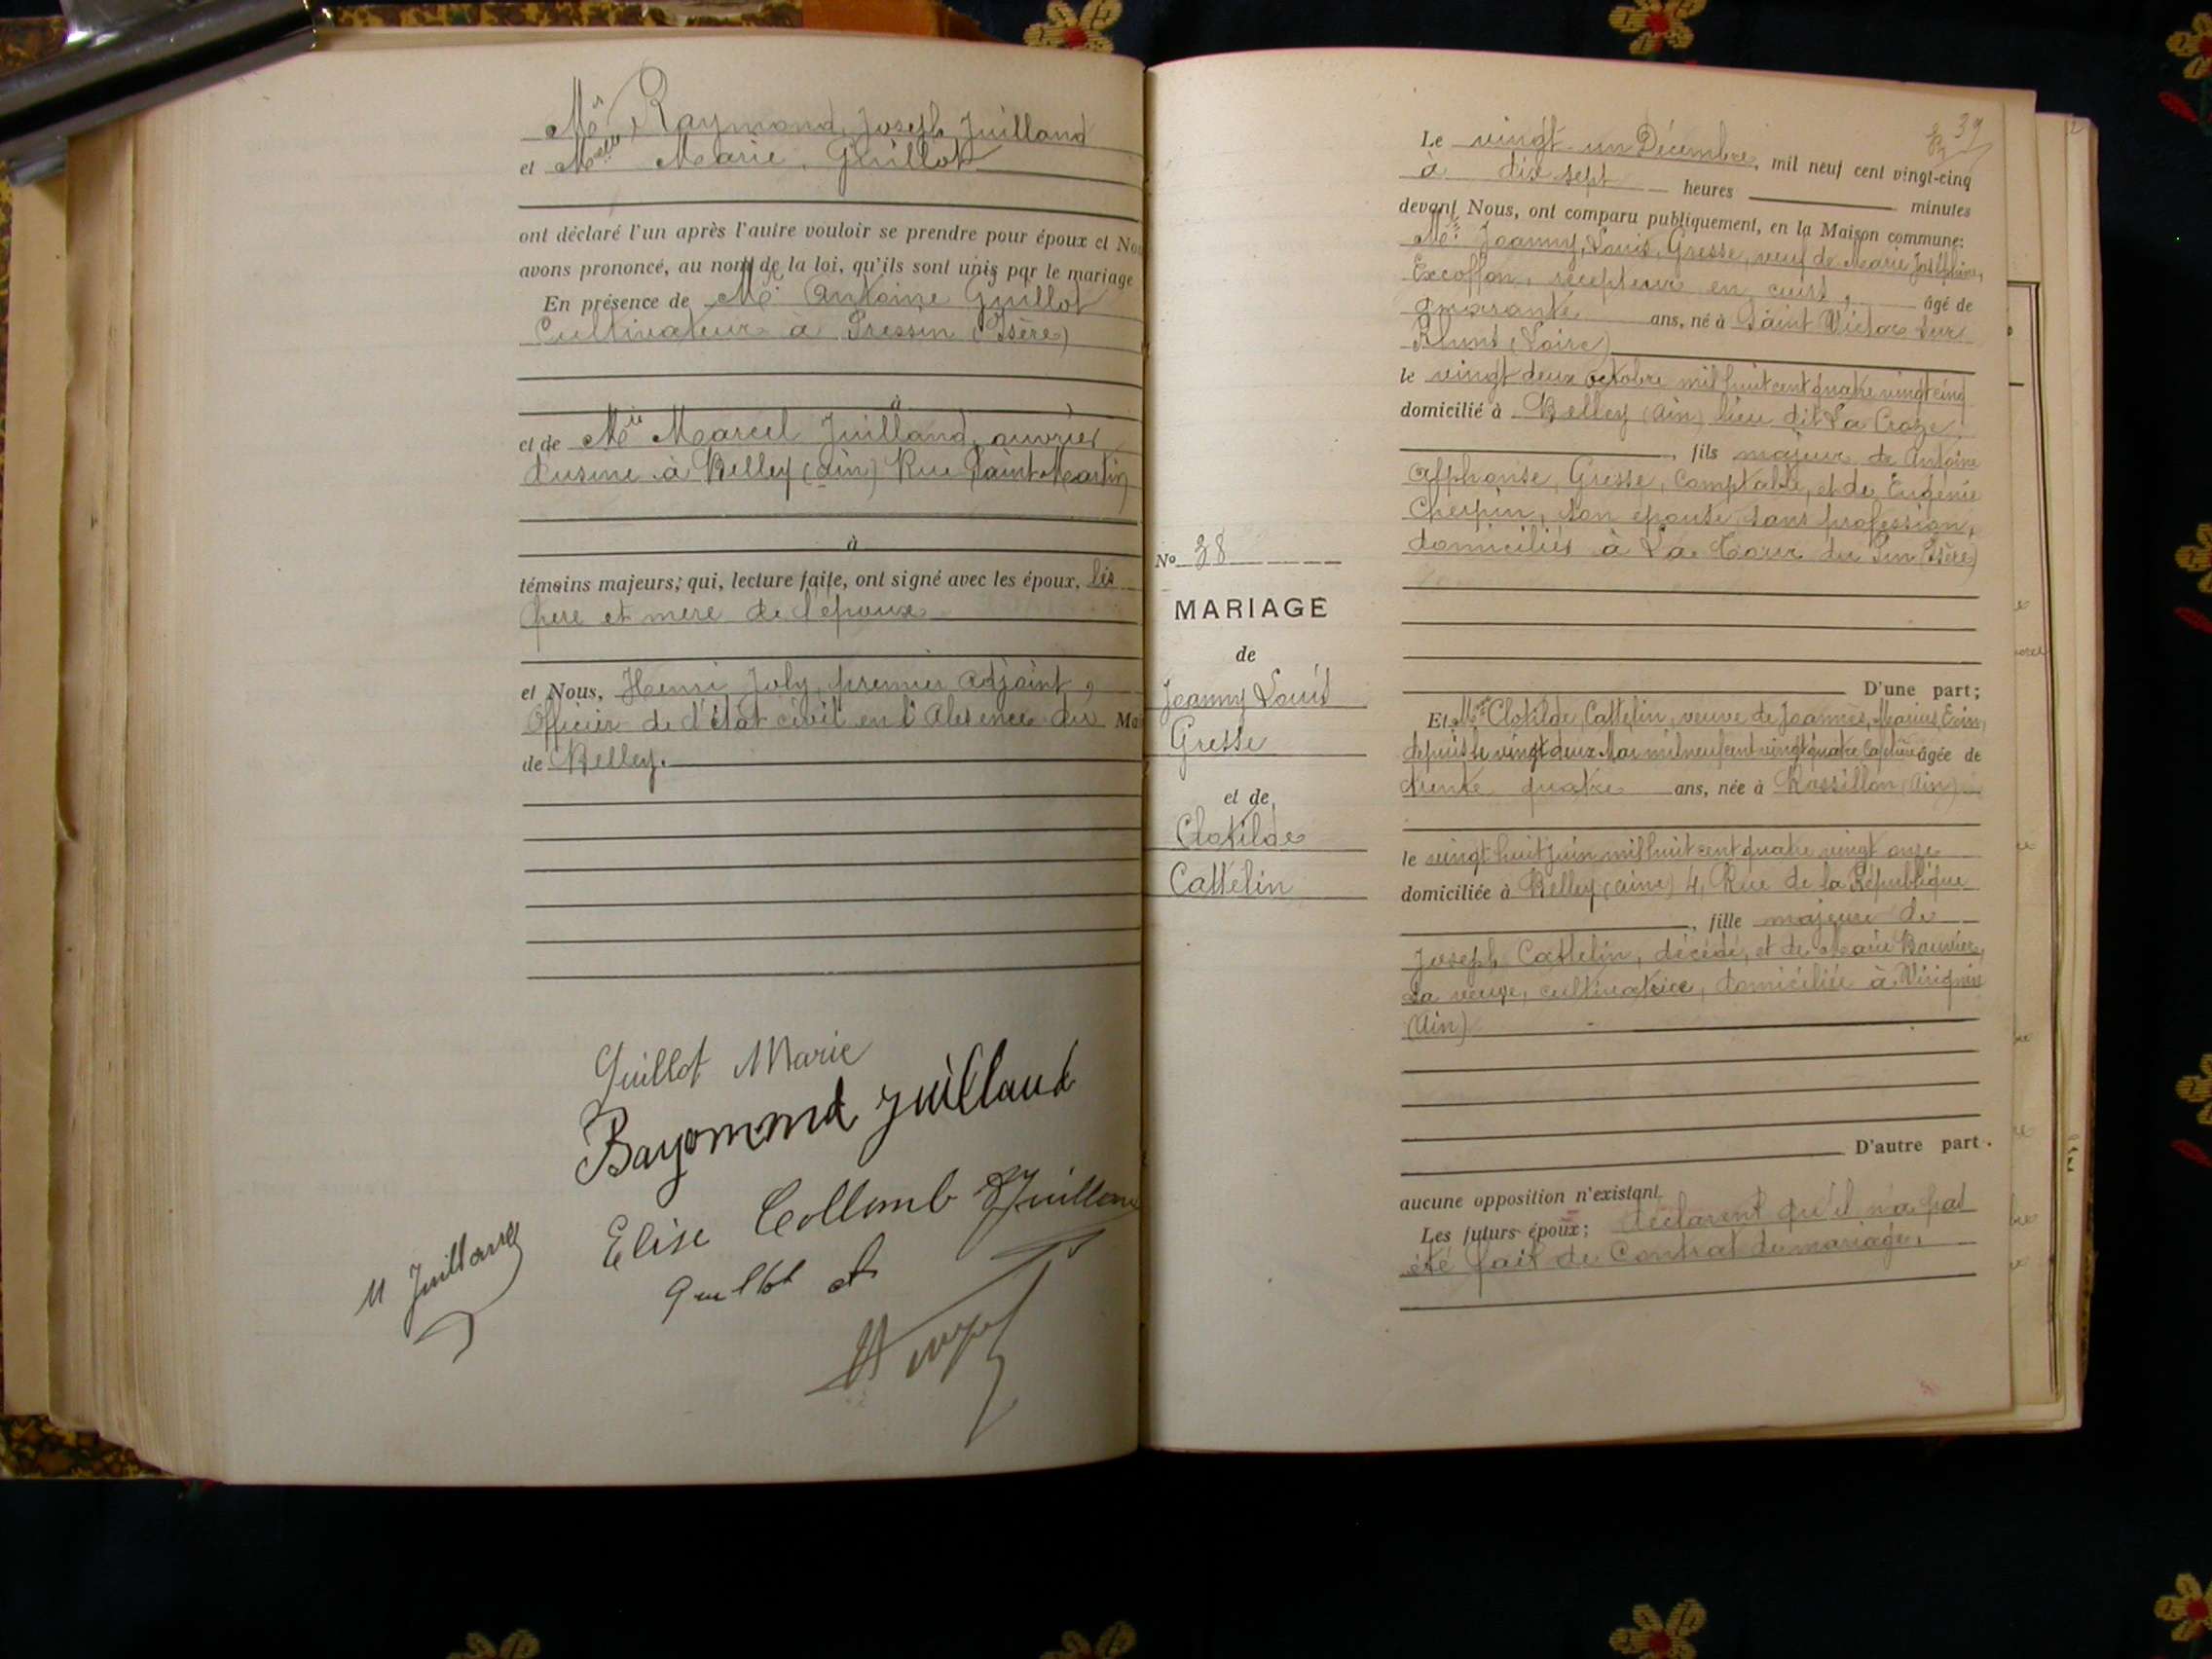 Mr Raymond, Joseph Juilland
et Melle Marie, Guillot
ont déclaré l'un après l'autre vouloir se prendre pour époux et Nou
avons prononcé, au nom de la loi, qu'ils sont unis par le mariage
En présence de Mr Antoine Guillot
Cultivateur à Pressin (Isère)
à
et de Mr Marcel Juilland, ouvrier
d'usine à Belley (Ain) Rue Saint Martin
à
témoins majeurs; qui, lecture faite, ont signé avec les époux, les
père et mère de l'époux
et Nous, Henri Joly, premier adjoint,
Officier de l'état civil en l'Absence du Ma
de Belley.
Guillot Marie
Rayomond Juilland
Elise Collomb Juilland
M Juilland
Guillot A
39
Le vingt un Décembre, mil neuf cent vingt-cinq
à dix sept heures minutes
devant Nous, ont comparu publiquement, en la Maison commune:
Mr Joanny, Louis, Gresse, veuf de Marie Joséphine,
Excoffon, récepteur en cuirs, âgé de
quarante ans, né à Saint Victor sur
Rhins (Loire)
le vingt deux octobre mil huit cent quatre vingt cinq
domicilié à Belley (Ain) lieu dit La Croze,
, fils majeur de Antoine
Alphonse, Gresse, Comptable, et de Eugénie
Cherpin, son épouse, sans profession,
domiciliés à La Tour du Pin (Isère)
No 38
MARIAGE
de
Joanny Louis
Gresse
et de
Clotilde
Cattelin
D'une part;
Et Mme Clotilde, Cattelin, veuve de Joannès, Marius,
depuis le vingt deux Mai mil neuf cent vingt quatre âgée de
trente quatre ans, née à Rossillon (Ain)
le vingt huit juin mil huit cent quatre vingt onze
domiciliée à Belley (Ain) 4, Rue de la République
, fille majeure de
Joseph Cattelin, décédé, et de Marie Bouvier,
sa veuve, cultivatrice, domiciliée à Virignin
(Ain)
D'autre part.
aucune opposition n'existant.
Les futurs époux; déclarent qu'il n'a pas
été fait de Contrat de mariage.